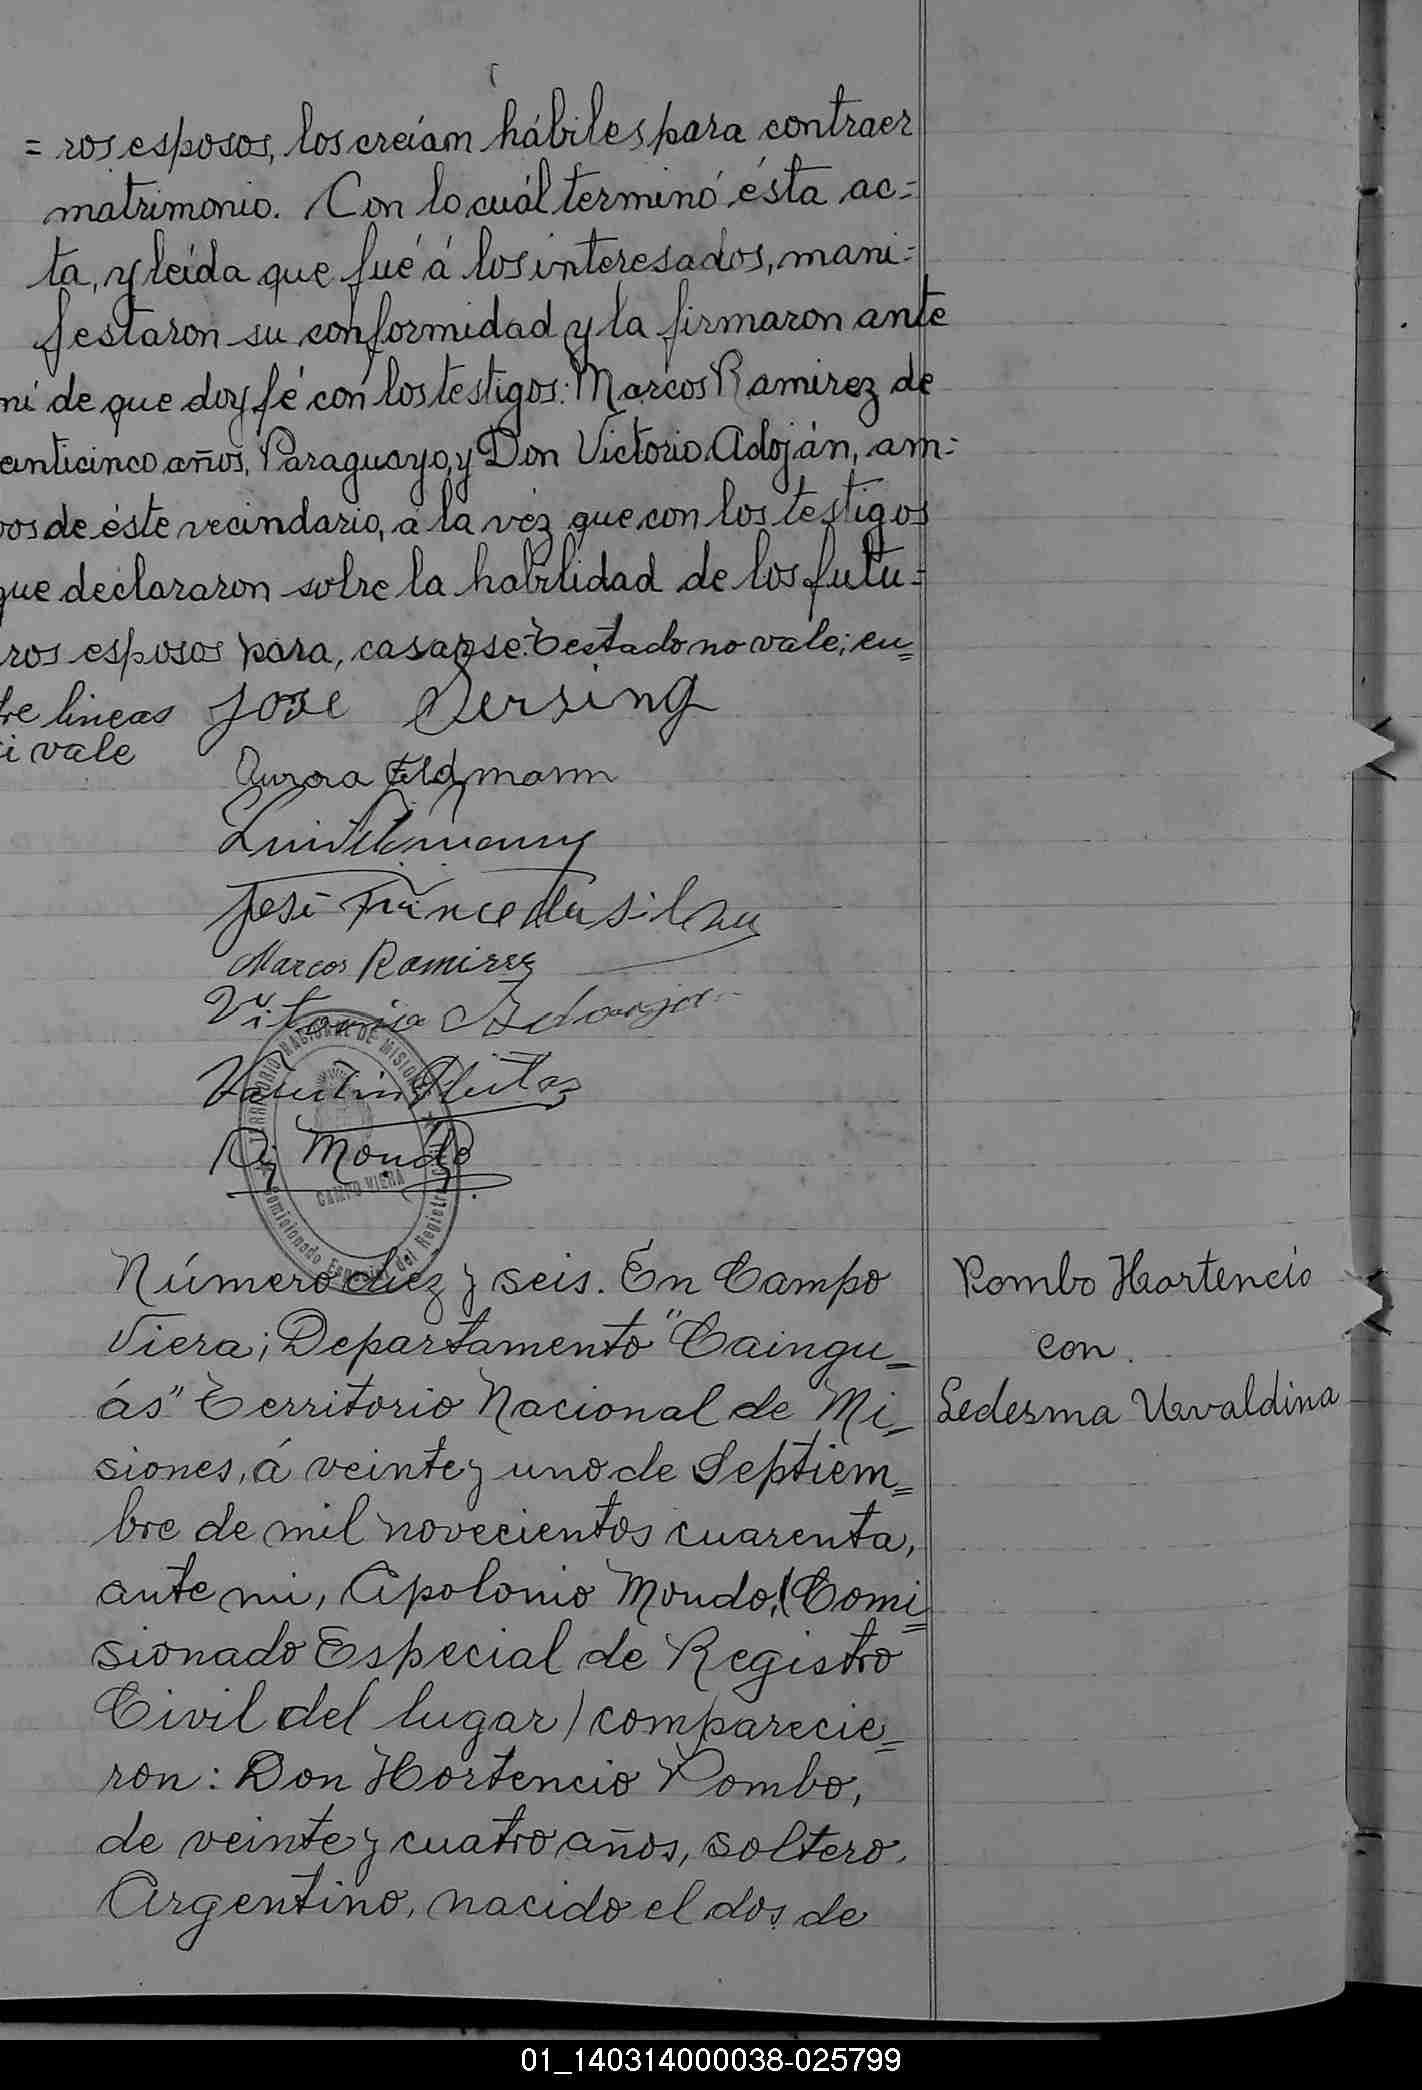 = ros esposos, los creían hábiles para contraer
matrimonio. Con lo cuál terminó ésta ac=
ta, y leída que fué á los interesados, mani=
festaron su conformidad y la firmaron ante
mi de que doy fé con los testigos: Marcos Ramirez de
einticinco años, Paraguayo, y Don Victorio Adoján, am=
bos de éste vecindario, a la véz que con los testigos
que declararon sobre la habilidad de los futu=
ros esposos para, casarse. T estado no vale; en=
tre lineas
si vale
Jose Dersing
Aurora Feldmann
José da Silva
Marcos Ramirez
TERRITORIO NACIONAL DE MISIONES
CAMPO VIERA
Comisionado Especial del Registro Civil
Ap Mondo
Número diez y seis. En Campo
Viera; Departamento "Caingu=
ás" Territorio Nacional de Mi=
siones, á veinte y uno de Septiem=
bre de mil novecientos cuarenta,
ante mi, Apolonio Mondo, (Comi=
sionado Especial de Registro
Civil del lugar) comparecie=
ron: Don Hortencio Pombo,
de veinte y cuatro años, soltero,
Argentino, nacido el dos de
Pombo Hortencio
con
Ledesma Uvaldina
01_140314000038-025799